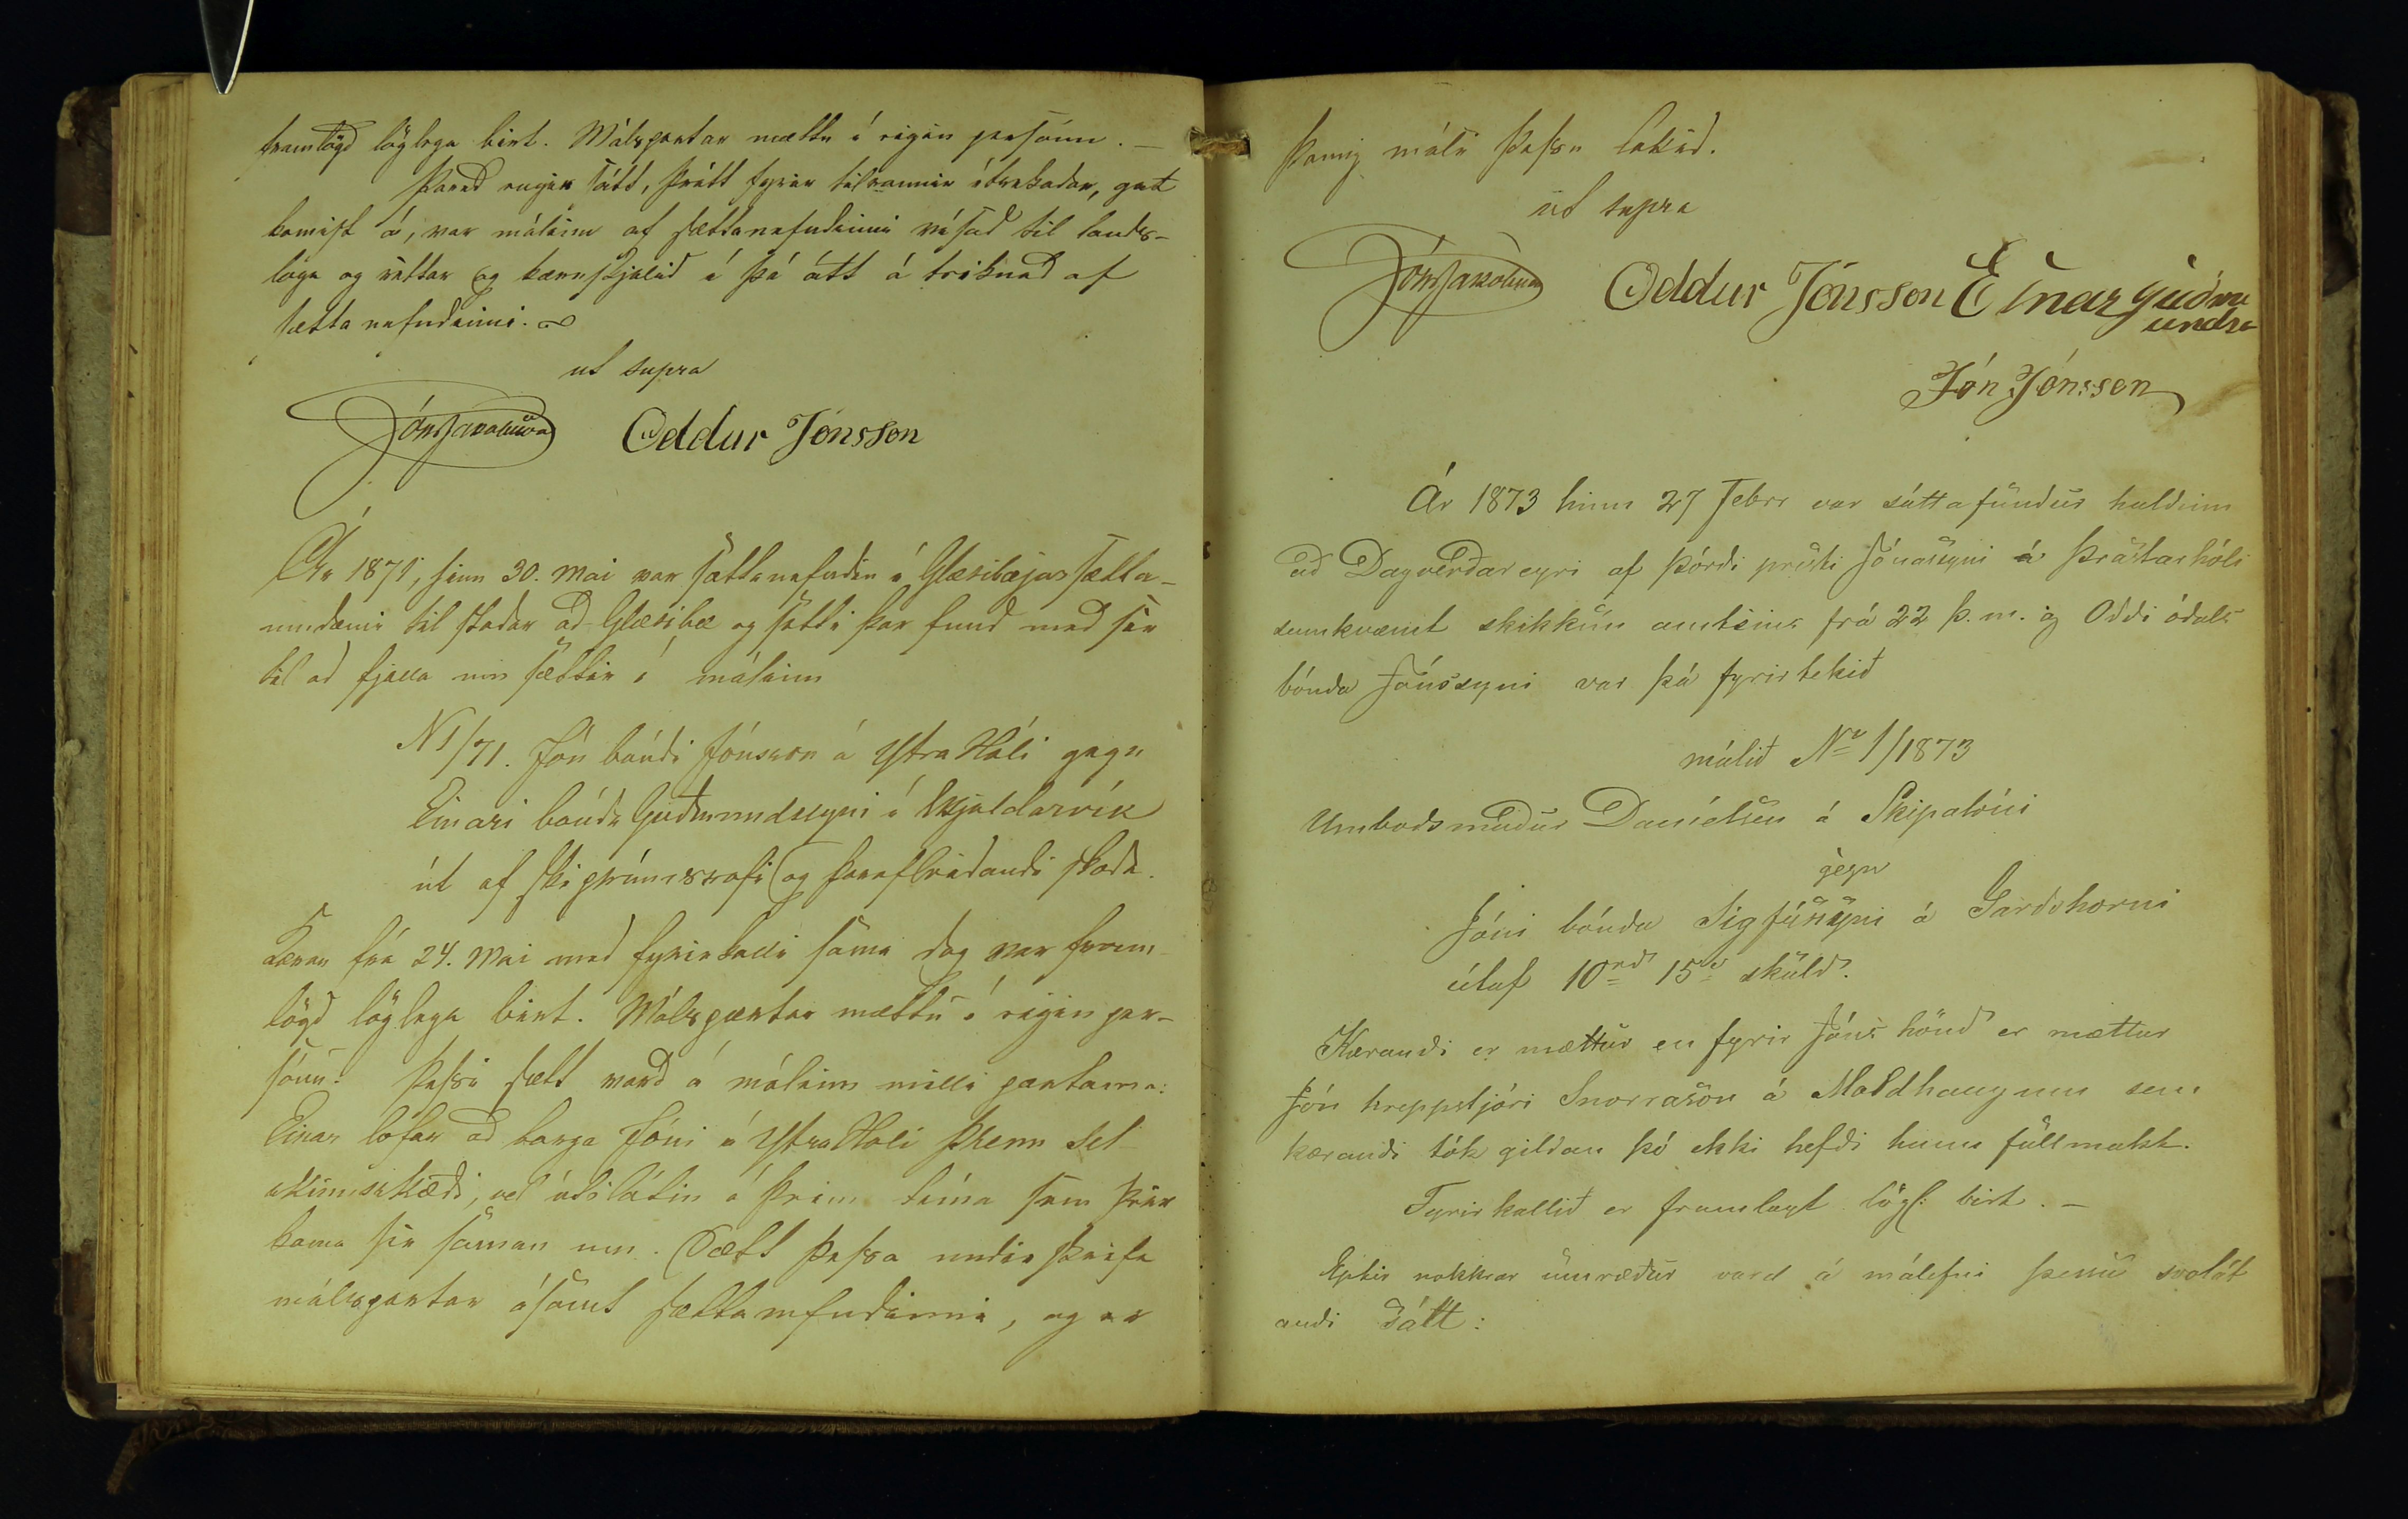 framlögð löglega birt. Málspartar mættu í eigin persónu. –
Þareð engin sátt, þrátt fyrir tilraunir ítrekaðar, gat
komist á, var málinu af sættanefndinni vísað til lands-
laga og réttar og kæruskjalið í þá átt áteiknað af
sættanefndinni.
ut supra
Jón Jakobsson Oddur Jónsson
Ár 1871, hinn 30. Mai var sættanefndin í Glæsibæjar sætta-
umdæmi til staðar að Glæsibæ og setti þar fund með sér
til að fjalla um sættir í málinu
N 1/71. Jón bóndi Jónsson á Ytra Hóli gegn
Einari bónda Guðmundssyni í Skjaldarvík
út af skiprúmsrofi og þaraf leiðandi skaða.
Kæran frá 24. Mai með fyrirkalli sama dag var fram-
lögð löglega birt. Málspartar mættu í eigin per-
sónu. Þessi sætt varð á málinu milli partanna:
Einar lofar að borga Jóni á Ytra Hóli þrenn sel-
skinnsklæði, vel útilátin á þeim tíma sem þeir
koma sér saman um. Sætt þessa undirskrifa
málspartar ásamt sættanefndinni, og er
Þannig máli þessu lokið.
ut supra
Jón Jakobsson Oddur Jónsson Einar Guðm
undss
Jón Jónsson
Ár 1873 hinn 27 Febrr var sáttafundur haldinn
að Dagverðareyri af Þórði presti Jónassyni á Þrastarhóli
samkvæmt skikkun amtsins frá 22 þ. m. og Oddi óðals
bónda Jónssyni var þá fyrirtekið
málið No 1/1873
Umboðsmaður Daníelsen á Skipalóni
gegn
Jóni bónda Sigfússyni á Garðshorni
útaf 10rd 15s skuld.
Kærandi er mættur en fyrir Jóns hönd er mættur
Jón hreppstjóri Snorrason á Moldhaugum sem
kærandi tók gildan þó ekki hefði hann fullmakt.
Fyrirkallið er framlagt lögl: birt. –
Eptir nokkrar umræður varð á málefni þessu svolát
andi Sátt: